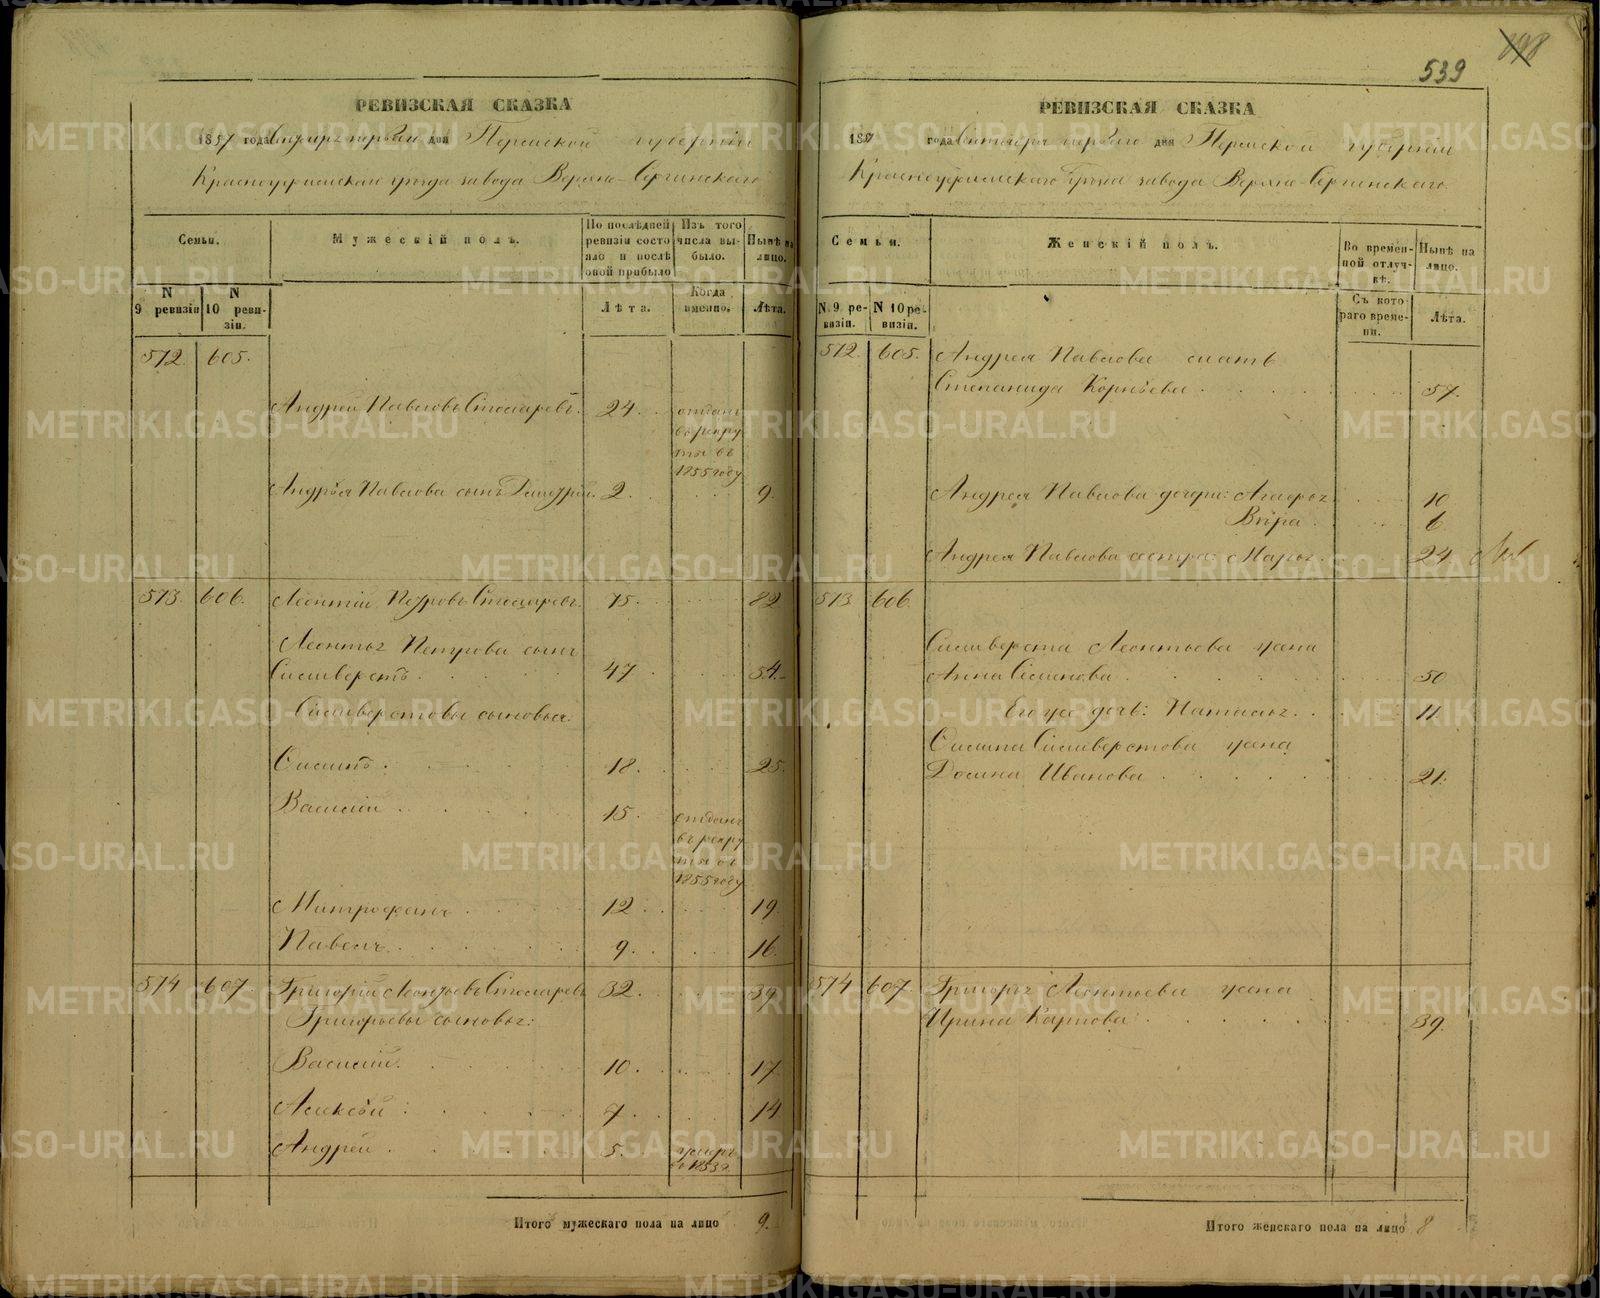 539
РЕВИЗСКАЯ СКАЗКА
1857 года первого дня Пермской губерніи
Красноуфимскаго уезда завода Верхне-Сергинскаго
Семьи.
Мужескій полъ.
По послѣдней ревизіи состояло и послѣ оной прибыло
Изъ того числа выбыло.
Нынѣ на лицо.
N 9 ревизіи
N 10 ревизіи.
Лѣта.
Когда именно.
Лѣта.
572. 605.
Андрей Павловъ Столяревъ. 24. отданъ
въ рекру
ты въ
1855 году
Андрея Павлова сынъ Дмитрій. 2. 9.
573. 606. Леонтій Петровъ Столяревъ. 75. 82
Леонтья Петрова сынъ
Сильверстъ. 47. 54.
Сильверстовы сыновья:
Осипъ. 18. 25.
Василій. 15. отданъ
въ рекру
ты въ
1855 году
Митрофанъ. 12. 19.
Павелъ. 9. 16.
574 607. Григорій Леонтьевъ Столяревъ 32. 39.
Григорьевы сыновья:
Василій. 10. 17.
Алексѣй. 7. 14
Андрей. 5. умеръ
въ 1853 г.
Итого мужескаго пола на лицо 9.
РЕВИЗСКАЯ СКАЗКА
1857 года первого дня Пермской губерніи
Красноуфимскаго уезда завода Верхне-Сергинскаго
Семьи.
Женскій полъ.
Во временной отлучкѣ.
Нынѣ на лицо.
N. 9 ревизіи.
N 10 ревизіи.
Съ котораго времени.
Лѣта.
572. 605. Андрея Павлова мать
Степанида Корнѣева. 57.
Андрея Павлова дочери: 10
Вѣра. 6.
Андрея Павлова сестра: Марья. 24
573 606.
Сильверста Леонтьева жена
Анна 50
Его же дочь: Наталья. 11.
Сильверстова жена
Иванова 21.
574 607. Григорья Леонтьева жена
Ирина Карпова. 39.
Итого женскаго пола на лицо 8
METRIKI.GASO-URAL.RU